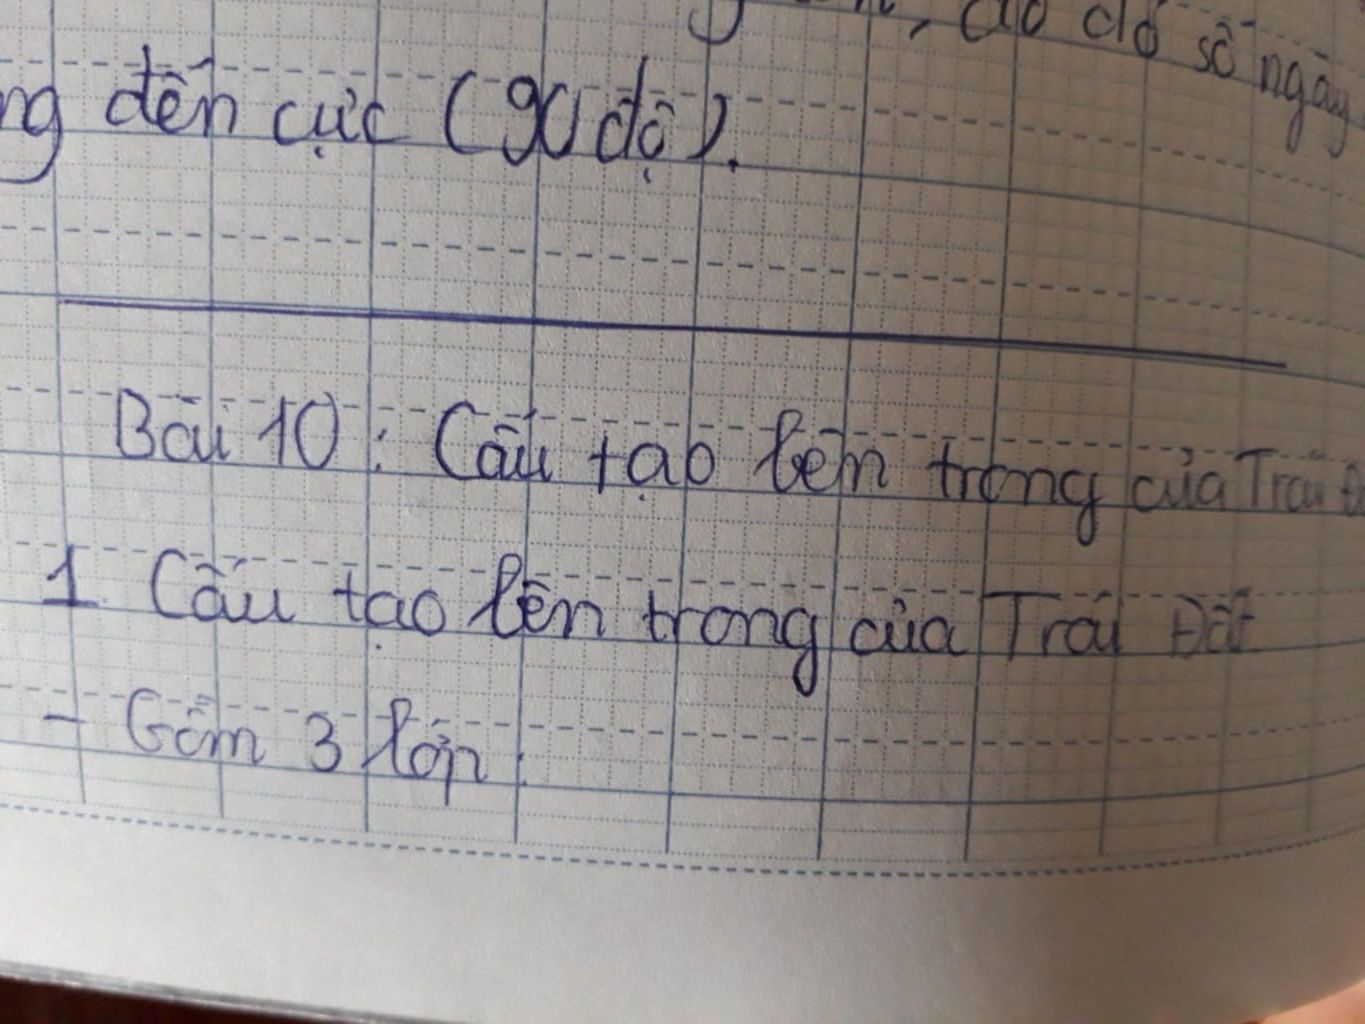 có độ số ngày
đến cực (90 độ).
Bài 10: Cấu tạo bên trong của Trái
1. Cấu tạo bên trong của Trái Đất
- Gồm 3 lớp: